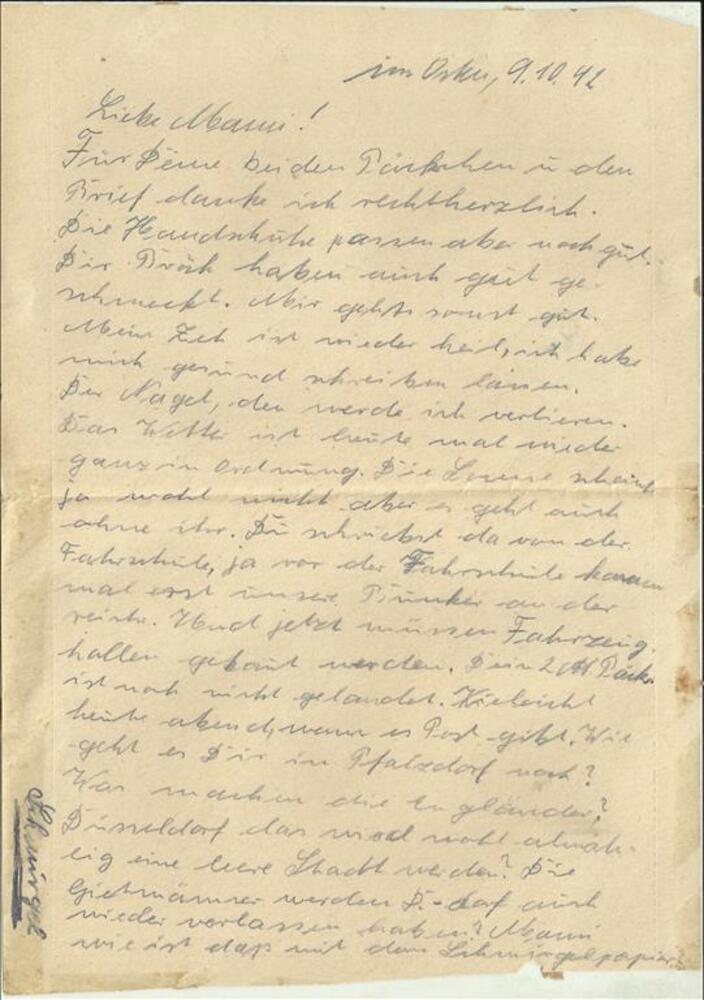 im Osten, 9.10.42
Liebe Mami!
Für Deine beiden Päckchen u den
Brief danke ich rechtherzlich.
Die Handschuhe passen aber noch gut.
Die haben auch gut ge-
schmeckt. Mir gehts sonst gut.
Mein Zeh ist wieder heil, ich habe
mich gesund schreiben lassen.
Der Nagel, den werde ich verlieren.
Das Wetter ist heute mal wieder
ganz in Ordnung. Die Sonne scheint
ja wohl nicht aber es geht auch
ohne ihr. Du schriebst da von der
Fahrschule, ja vor der Fahrschule kamen
mal erst unsere Bunker an der
reihe. Und jetzt müssen Fahrzeug-
hallen gebaut werden. Dein 2 Päck.
ist noch nicht gelandet. Vieleicht
heute abend, wenn es Post gibt. Wie
geht es Dir in Pfalzdorf noch?
Was machen die Engländer?
Düsseldorf das wird wohl almäh-
lig eine leere Stadt werden? Die
werden D.-dorf auch
wieder verlassen haben? Mami
wie ist daß mit dem Schmirgelpapier?
Schmirgel